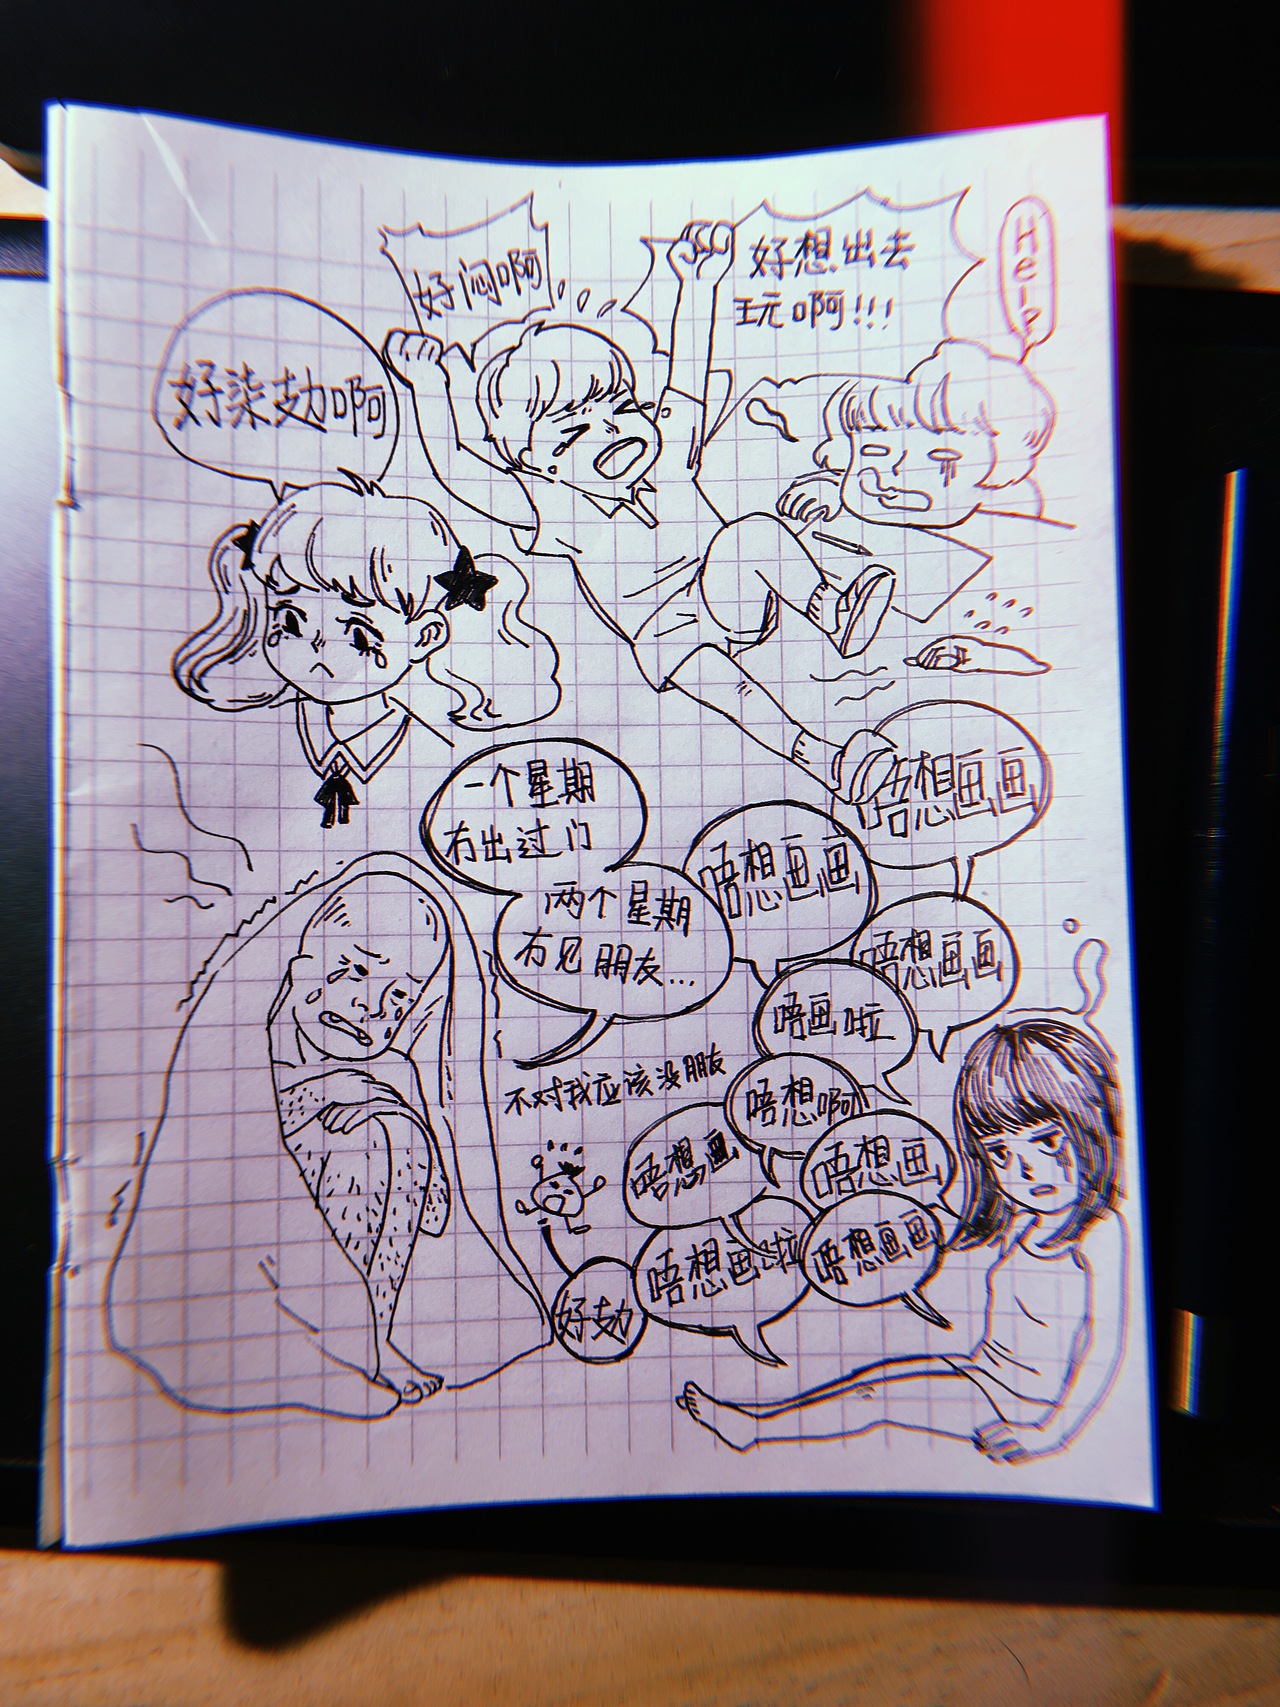 好闷啊
好想出去
玩啊!!!
Help
好柒攰啊
唔想画画
一个星期
冇出过门
唔想画画
两个星期
冇见朋友...
唔想画画
唔画啦
不对我应该没朋友
唔想啊
唔想画
唔想画
唔想画啦
唔想画画
好攰